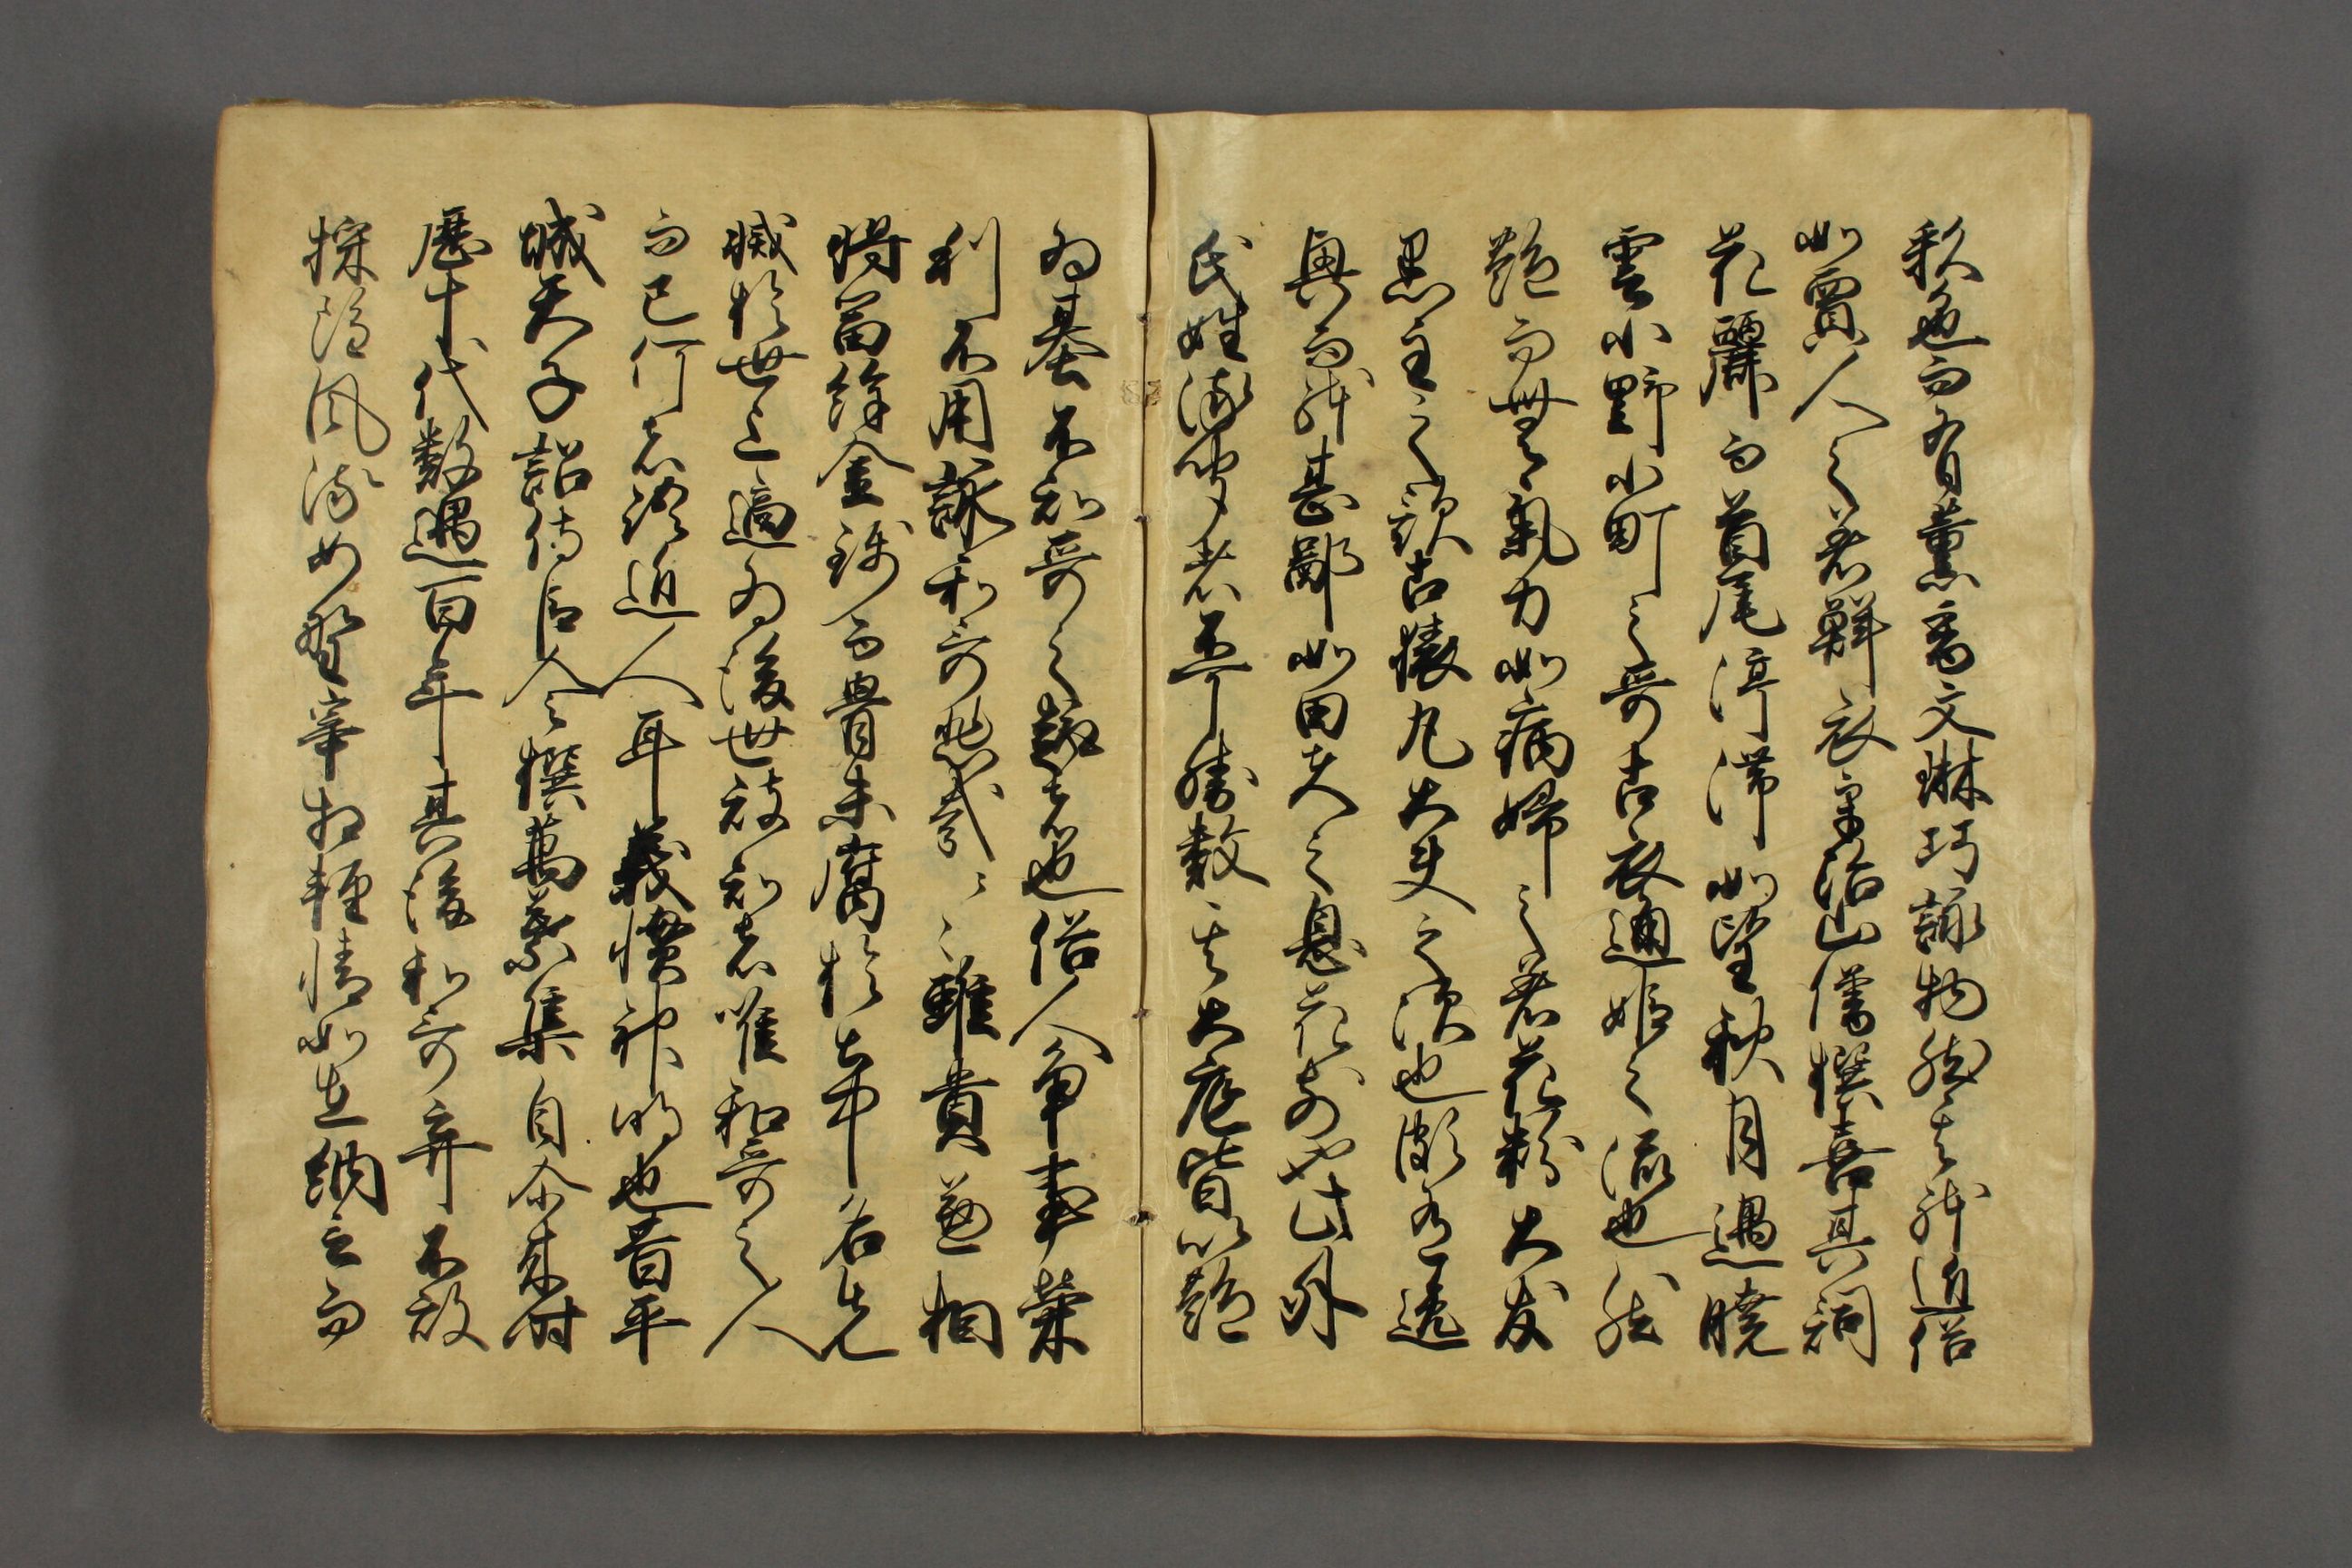 秋色而有薫香文琳巧詠物然其躰近俗
如賈人之着鮮衣宇治山僧撰喜其詞
花麗而首尾渟滞如望秋月遇暁
雲小野小町之哥古衣通姫之流也然
艶而無氣力如病婦之着花粉大友
黒主之歌古猿丸大夫之次也頗有逸
興而躰甚鄙如田夫之息花前也此外
氏姓流聞者不可勝數其大底皆以艶
為基不知哥之趣者也俗人争事榮
利不用詠和哥悲哉々々雖貴兼相
将冨餘金銭而骨未腐於土中名先
滅於世上適為後世被知者唯和哥之人
而已何者語近人耳義慣神明也昔平
城天子詔侍臣令撰萬葉集自尓来時
歴十代數過百年其後和哥弃不被
採雖風流如野宰相軽情如在納言而